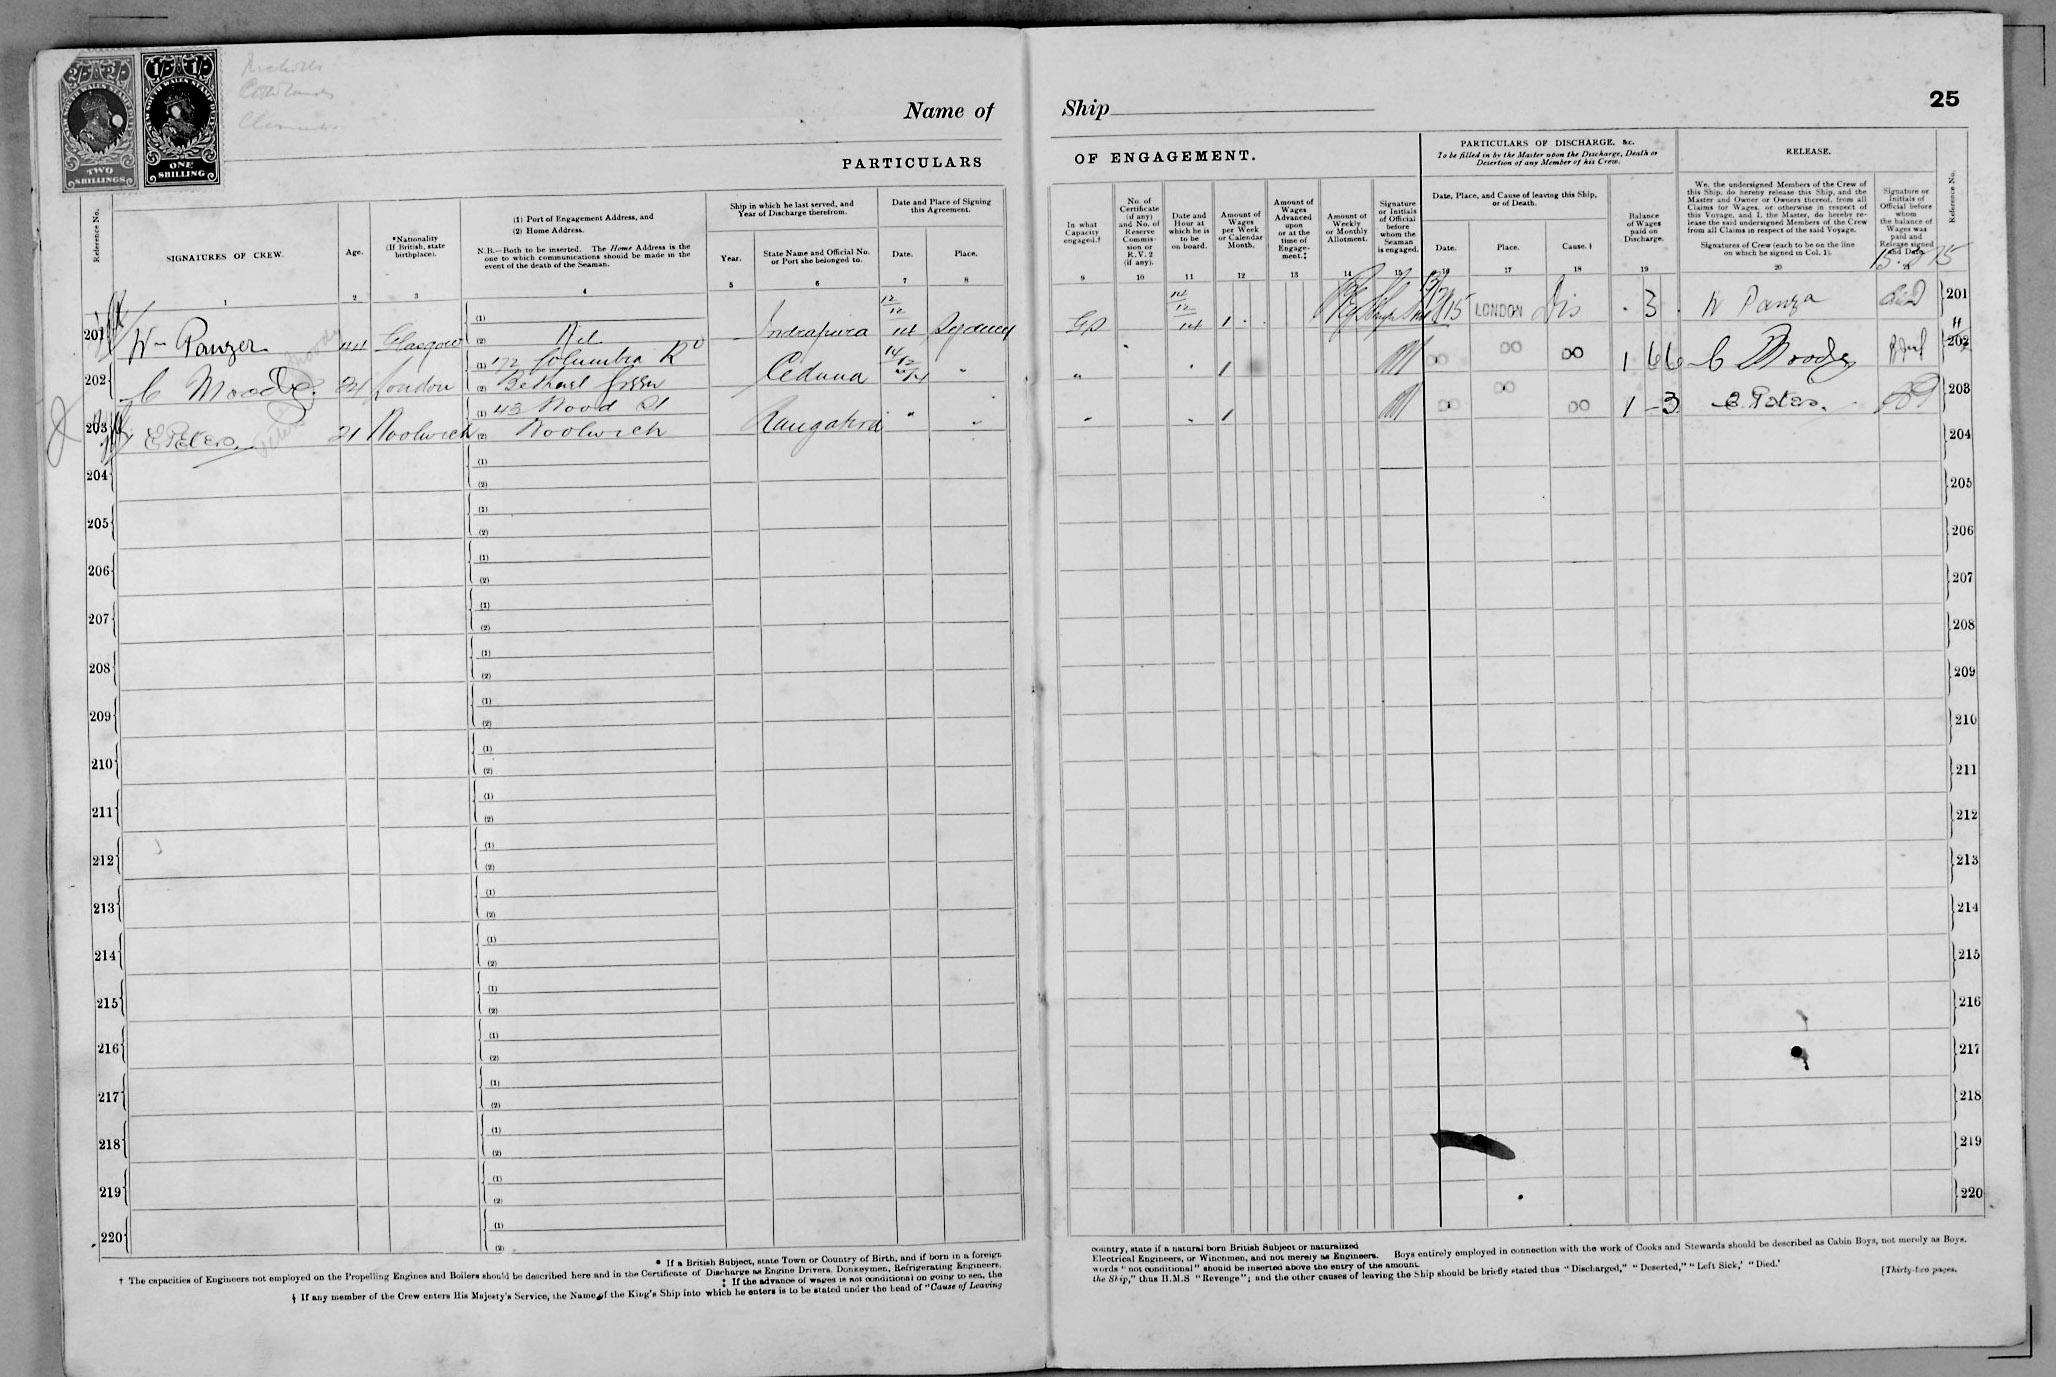 2/- 2/-
NEW SOUTH WALES STAMP DUTY
TWO
SHILLINGS
1/- 1/-
NEW SOUTH WALES STAMP DUTY
ONE
SHILLING
Name of Ship
25
PARTICULARS OF ENGAGEMENT.
PARTICULARS OF DISCHARGE, &c.
To be filled in by the Master upon the Discharge, Death or
Desertion of any Member of his Crew.
RELEASE.
Reference No.
SIGNATURES OF CREW.
Age.
*Nationality
(If British, state
birthplace).
(1) Port of Engagement Address, and
(2) Home Address.
N.B.—Both to be inserted. The Home Address is the
one to which communications should be made in the
event of the death of the Seaman.
Ship in which he last served, and
Year of Discharge therefrom.
Year.
State Name and Official No.
or Port she belonged to.
Date and Place of Signing
this Agreement.
Date.
Place.
In what
Capacity
engaged.†
No. of
Certificate
(if any)
and No. of
Reserve
Commis-
sion or
R.V. 2
(if any).
Date and
Hour at
which he is
to be
on board.
Amount of
Wages
per Week
or Calendar
Month.
Amount of
Wages
Advanced
upon
or at the
time of
Engage-
ment.‡
Amount of
Weekly
or Monthly
Allotment.
Signature
or Initials
of Official
before
whom the
Seaman
is engaged.
Date, Place, and Cause of leaving this Ship,
or of Death.
Date.
Place.
Cause.§
Balance
of Wages
paid on
Discharge.
We, the undersigned Members of the Crew of
this Ship, do hereby release this Ship, and the
Master and Owner or Owners thereof, from all
Claims for Wages, or otherwise in respect of
this Voyage, and I, the Master, do hereby re-
lease the said undersigned Members of the Crew
from all Claims in respect of the said Voyage.
Signatures of Crew (each to be on the line
on which he signed in Col. 1).
Signature or
Initials of
Official before
whom
the balance of
Wages was
paid and
Release signed
and Date.
Reference No.
1 2 3 4 5 6 7 8 9 10 11 12 13 14 15 16 17 18 19 20 21
201 Wm Panzer 44 Glasgow (1) (2) Nil — Indrapura 12/12/14 Sydney GS 12/12/14 1 15 LONDON Dis 3 W Panza 201
202 C Moody 21 London (1) 172 Columbia Rd (2) Bethnal Green Ceduna " " 1 DO DO DO 1 66 C Moody 202
203 E Peters 21 Woolwich (1) 43 Wood St (2) Woolwich Rangatira " " " 1 DO DO DO 1 - 3 E Peters 203
204 (1) (2) 204
205 (1) (2) 205
206 (1) (2) 206
207 (1) (2) 207
208 (1) (2) 208
209 (1) (2) 209
210 (1) (2) 210
211 (1) (2) 211
212 (1) (2) 212
213 (1) (2) 213
214 (1) (2) 214
215 (1) (2) 215
216 (1) (2) 216
217 (1) (2) 217
218 (1) (2) 218
219 (1) (2) 219
220 (1) (2) 220
* If a British Subject, state Town or Country of Birth, and if born in a foreign country, state if a natural born British Subject or naturalized
† The capacities of Engineers not employed on the Propelling Engines and Boilers should be described here and in the Certificate of Discharge as Engine Drivers, Donkeymen, Refrigerating Engineers, Electrical Engineers, or Winchmen, and not merely as Engineers. Boys entirely employed in connection with the work of Cooks and Stewards should be described as Cabin Boys, not merely as Boys.
‡ If the advance of wages is not conditional on going to sea, the words "not conditional" should be inserted above the entry of the amount.
§ If any member of the Crew enters His Majesty's Service, the Name of the King's Ship into which he enters is to be stated under the head of "Cause of Leaving the Ship," thus H.M.S "Revenge"; and the other causes of leaving the Ship should be briefly stated thus "Discharged," "Deserted," "Left Sick,' "Died.'
[Thirty-two pages.